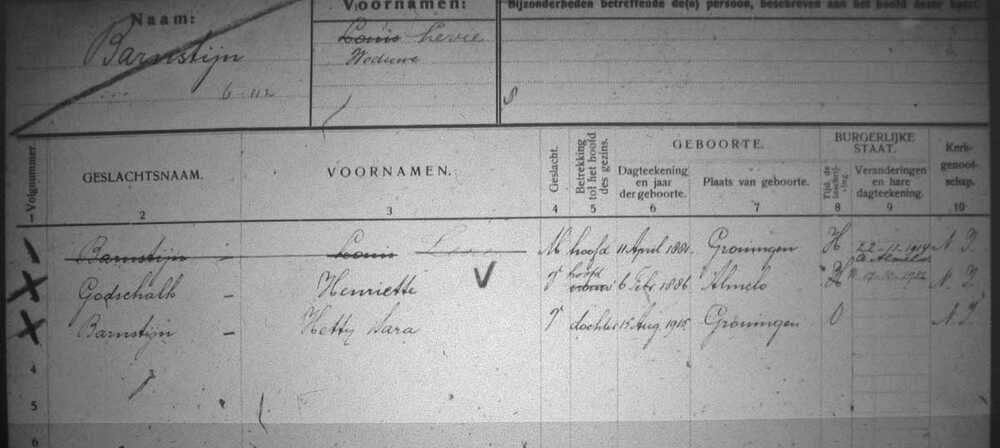 Naam:
Voornamen:
Bijzonderheden betreffende de(n) persoon, beschreven aan het hoofd dezer kaart.
Barnstijn
Louis Levie
Weduwe
6-112
Volgnummer
GESLACHTSNAAM.
VOORNAMEN.
Geslacht.
Betrekking tot het hoofd des gezins.
GEBOORTE.
BURGERLIJKE STAAT.
Kerkgenootschap.
Dagteekening en jaar der geboorte.
Plaats van geboorte.
Veranderingen en hare dagteekening.
1 2 3 4 5 6 7 8 9 10
Barnstijn - Louis M hoofd 11 April 1881 Groningen H 22-11-1914 N. I.
Almelo
Godschalk - Henriette V hoofd 6 Febr. 1886 Almelo H N. I.
Barnstijn - Hettij Sara V dochter 15 Aug. 1915 Groningen O N. I.
4
5
6